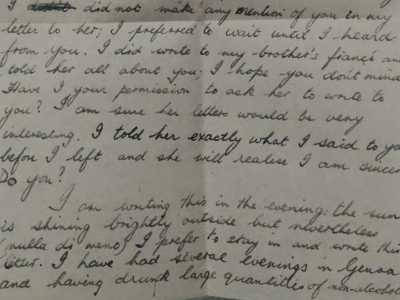 I did not make any mention of you in my
letter to her; I preferred to wait until I heard
from you. I did write to my brother's fiancé and
told her all about you; I hope you don't mind
Have I your permission to ask her to write to
you? I am sure her letters would be very
interesting. I told her exactly what I said to you
before I left and she will realise I am sincer
Do you?
I am writing this in the evening; the sun
is shining brightly outside but nevertheless
(nulla di meno) I prefer to stay in and write this
letter. I have had several evenings in Genoa
and having drunk large quantities of non-alcohol